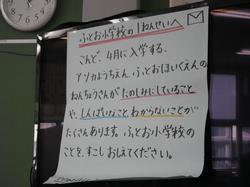 ふとお小学校の1ねんせいへ
こんど、4月に入学する、
アソカようちえん、ふとおほいくえんの
ねんちょうさんが たのしみにしていること
や、しんぱいなこと わからないことが
たくさんあります。ふとお小学校の
ことを、すこし おしえてください。